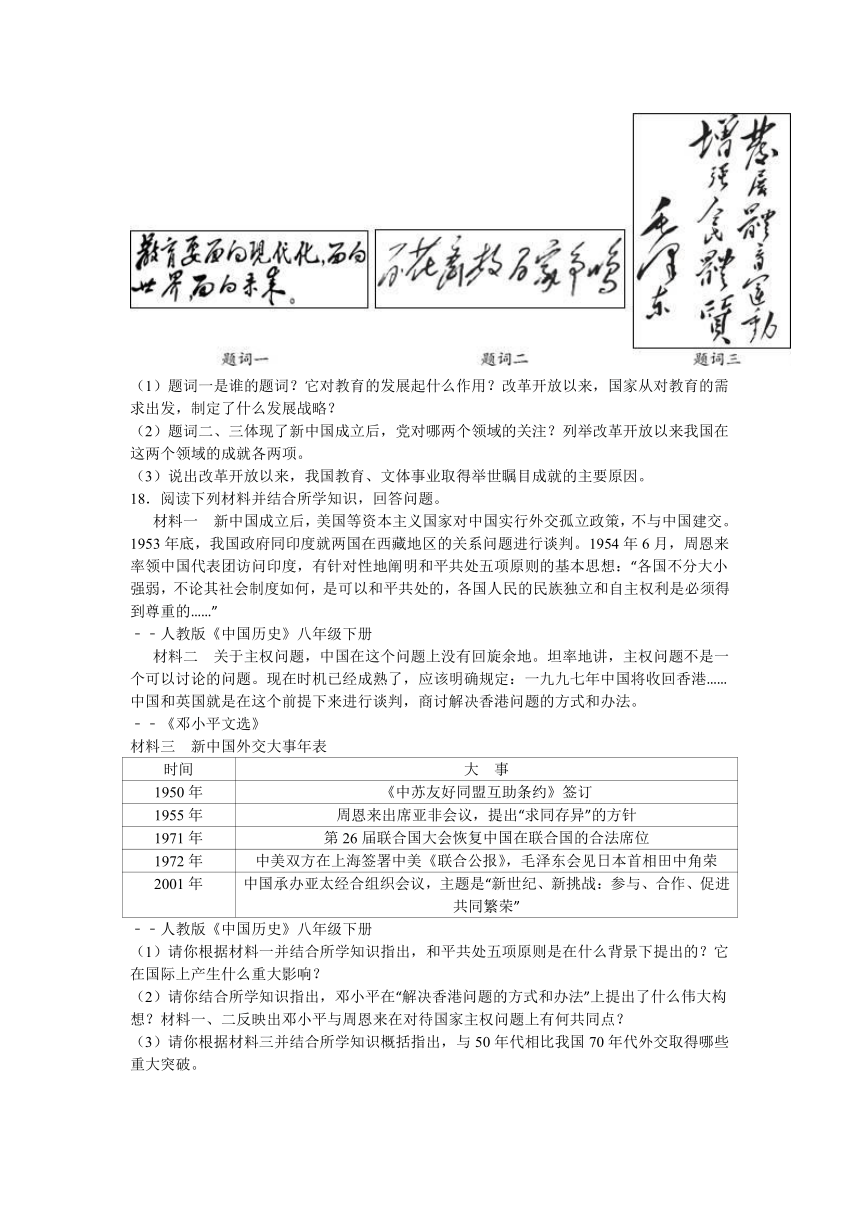 教育要面向现代化,面向
世界,面向未来。
百花齊放百家争鸣
發展體育運動
增强人民體質
毛泽东
题词一
题词二
题词三
（1）题词一是谁的题词？它对教育的发展起什么作用？改革开放以来，国家从对教育的需
求出发，制定了什么发展战略？
（2）题词二、三体现了新中国成立后，党对哪两个领域的关注？列举改革开放以来我国在
这两个领域的成就各两项。
（3）说出改革开放以来，我国教育、文体事业取得举世瞩目成就的主要原因。
18．阅读下列材料并结合所学知识，回答问题。
材料一　新中国成立后，美国等资本主义国家对中国实行外交孤立政策，不与中国建交。
1953 年底，我国政府同印度就两国在西藏地区的关系问题进行谈判。1954 年 6 月，周恩来
率领中国代表团访问印度，有针对性地阐明和平共处五项原则的基本思想：“各国不分大小
强弱，不论其社会制度如何，是可以和平共处的，各国人民的民族独立和自主权利是必须得
到尊重的……”
﹣﹣人教版《中国历史》八年级下册
材料二　关于主权问题，中国在这个问题上没有回旋余地。坦率地讲，主权问题不是一
个可以讨论的问题。现在时机已经成熟了，应该明确规定：一九九七年中国将收回香港……
中国和英国就是在这个前提下来进行谈判，商讨解决香港问题的方式和办法。
﹣﹣《邓小平文选》
材料三　新中国外交大事年表
时间　大　事
1950 年　《中苏友好同盟互助条约》签订
1955 年　周恩来出席亚非会议，提出“求同存异”的方针
1971 年　第 26 届联合国大会恢复中国在联合国的合法席位
1972 年　中美双方在上海签署中美《联合公报》，毛泽东会见日本首相田中角荣
2001 年　中国承办亚太经合组织会议，主题是“新世纪、新挑战：参与、合作、促进
共同繁荣”
﹣﹣人教版《中国历史》八年级下册
（1）请你根据材料一并结合所学知识指出，和平共处五项原则是在什么背景下提出的？它
在国际上产生什么重大影响？
（2）请你结合所学知识指出，邓小平在“解决香港问题的方式和办法”上提出了什么伟大构
想？材料一、二反映出邓小平与周恩来在对待国家主权问题上有何共同点？
（3）请你根据材料三并结合所学知识概括指出，与 50 年代相比我国 70 年代外交取得哪些
重大突破。